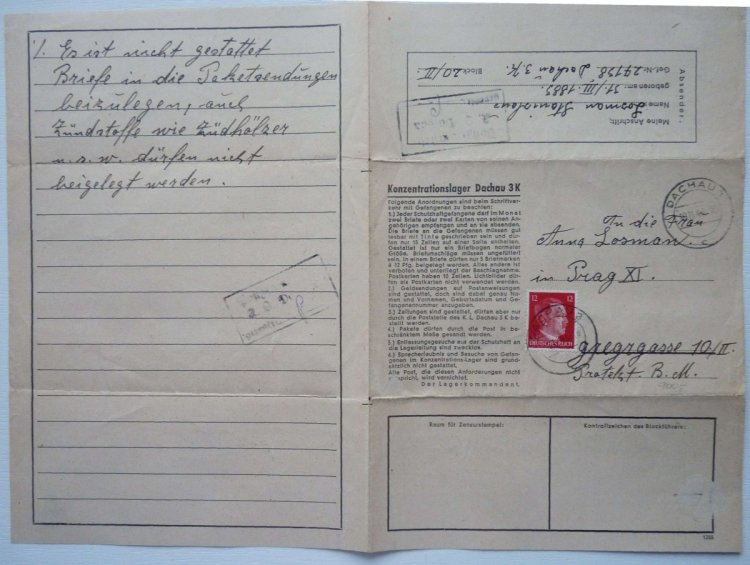 1. Es ist nicht gestattet
Briefe in die Paketsendungen
beizulegen, auch
Zündstoffe wie Züdhölzer
u.s.w. dürfen nicht
beigelegt werden.
Absender:
Meine Anschrift:
Name: Losman Stanislaus
geboren am: 11/III. 1889.
Gef.-Nr. 27198 Dachau 3 K.
Block: 20/III.
DACHAU
Konzentrationslager Dachau 3 K
Folgende Anordnungen sind beim Schriftver-
kehr mit Gefangenen zu beachten:
1.) Jeder Schutzhaftgefangene darf im Monat
zwei Briefe oder zwei Karten von seinen An-
gehörigen empfangen und an sie absenden.
Die Briefe an die Gefangenen müssen gut
lesbar mit Tinte geschrieben sein und dür-
fen nur 15 Zeilen auf einer Seite enthalten.
Gestattet ist nur ein Briefbogen normaler
Größe. Briefumschläge müssen ungefüttert
sein. In einem Briefe dürfen nur 5 Briefmarken
à 12 Pfg. beigelegt werden. Alles andere ist
verboten und unterliegt der Beschlagnahme.
Postkarten haben 10 Zeilen. Lichtbilder dür-
fen als Postkarten nicht verwendet werden.
2.) Geldsendungen auf Postanweisungen
sind gestattet, doch sind dabei genau Na-
men und Vornamen, Geburtsdatum und Ge-
fangenennummer anzugeben.
3.) Zeitungen sind gestattet, dürfen aber nur
durch die Poststelle des K. L. Dachau 3 K be-
stellt werden.
4.) Pakete dürfen durch die Post in be-
schränktem Maße gesandt werden.
5.) Entlassungsgesuche aus der Schutzhaft an
die Lagerleitung sind zwecklos.
6.) Sprecherlaubnis und Besuche von Gefan-
genen im Konzentrations-Lager sind grund-
sätzlich nicht gestattet.
Alle Post, die diesen Anforderungen nicht
entspricht, wird vernichtet.
Der Lagerkommandant.
An die Frau
Anna Losman.
in Prag XI.
12 12
DEUTSCHES REICH
10/II.
Protekt. B. M.
Raum für Zensurstempel:
Kontrollzeichen des Blockführers: